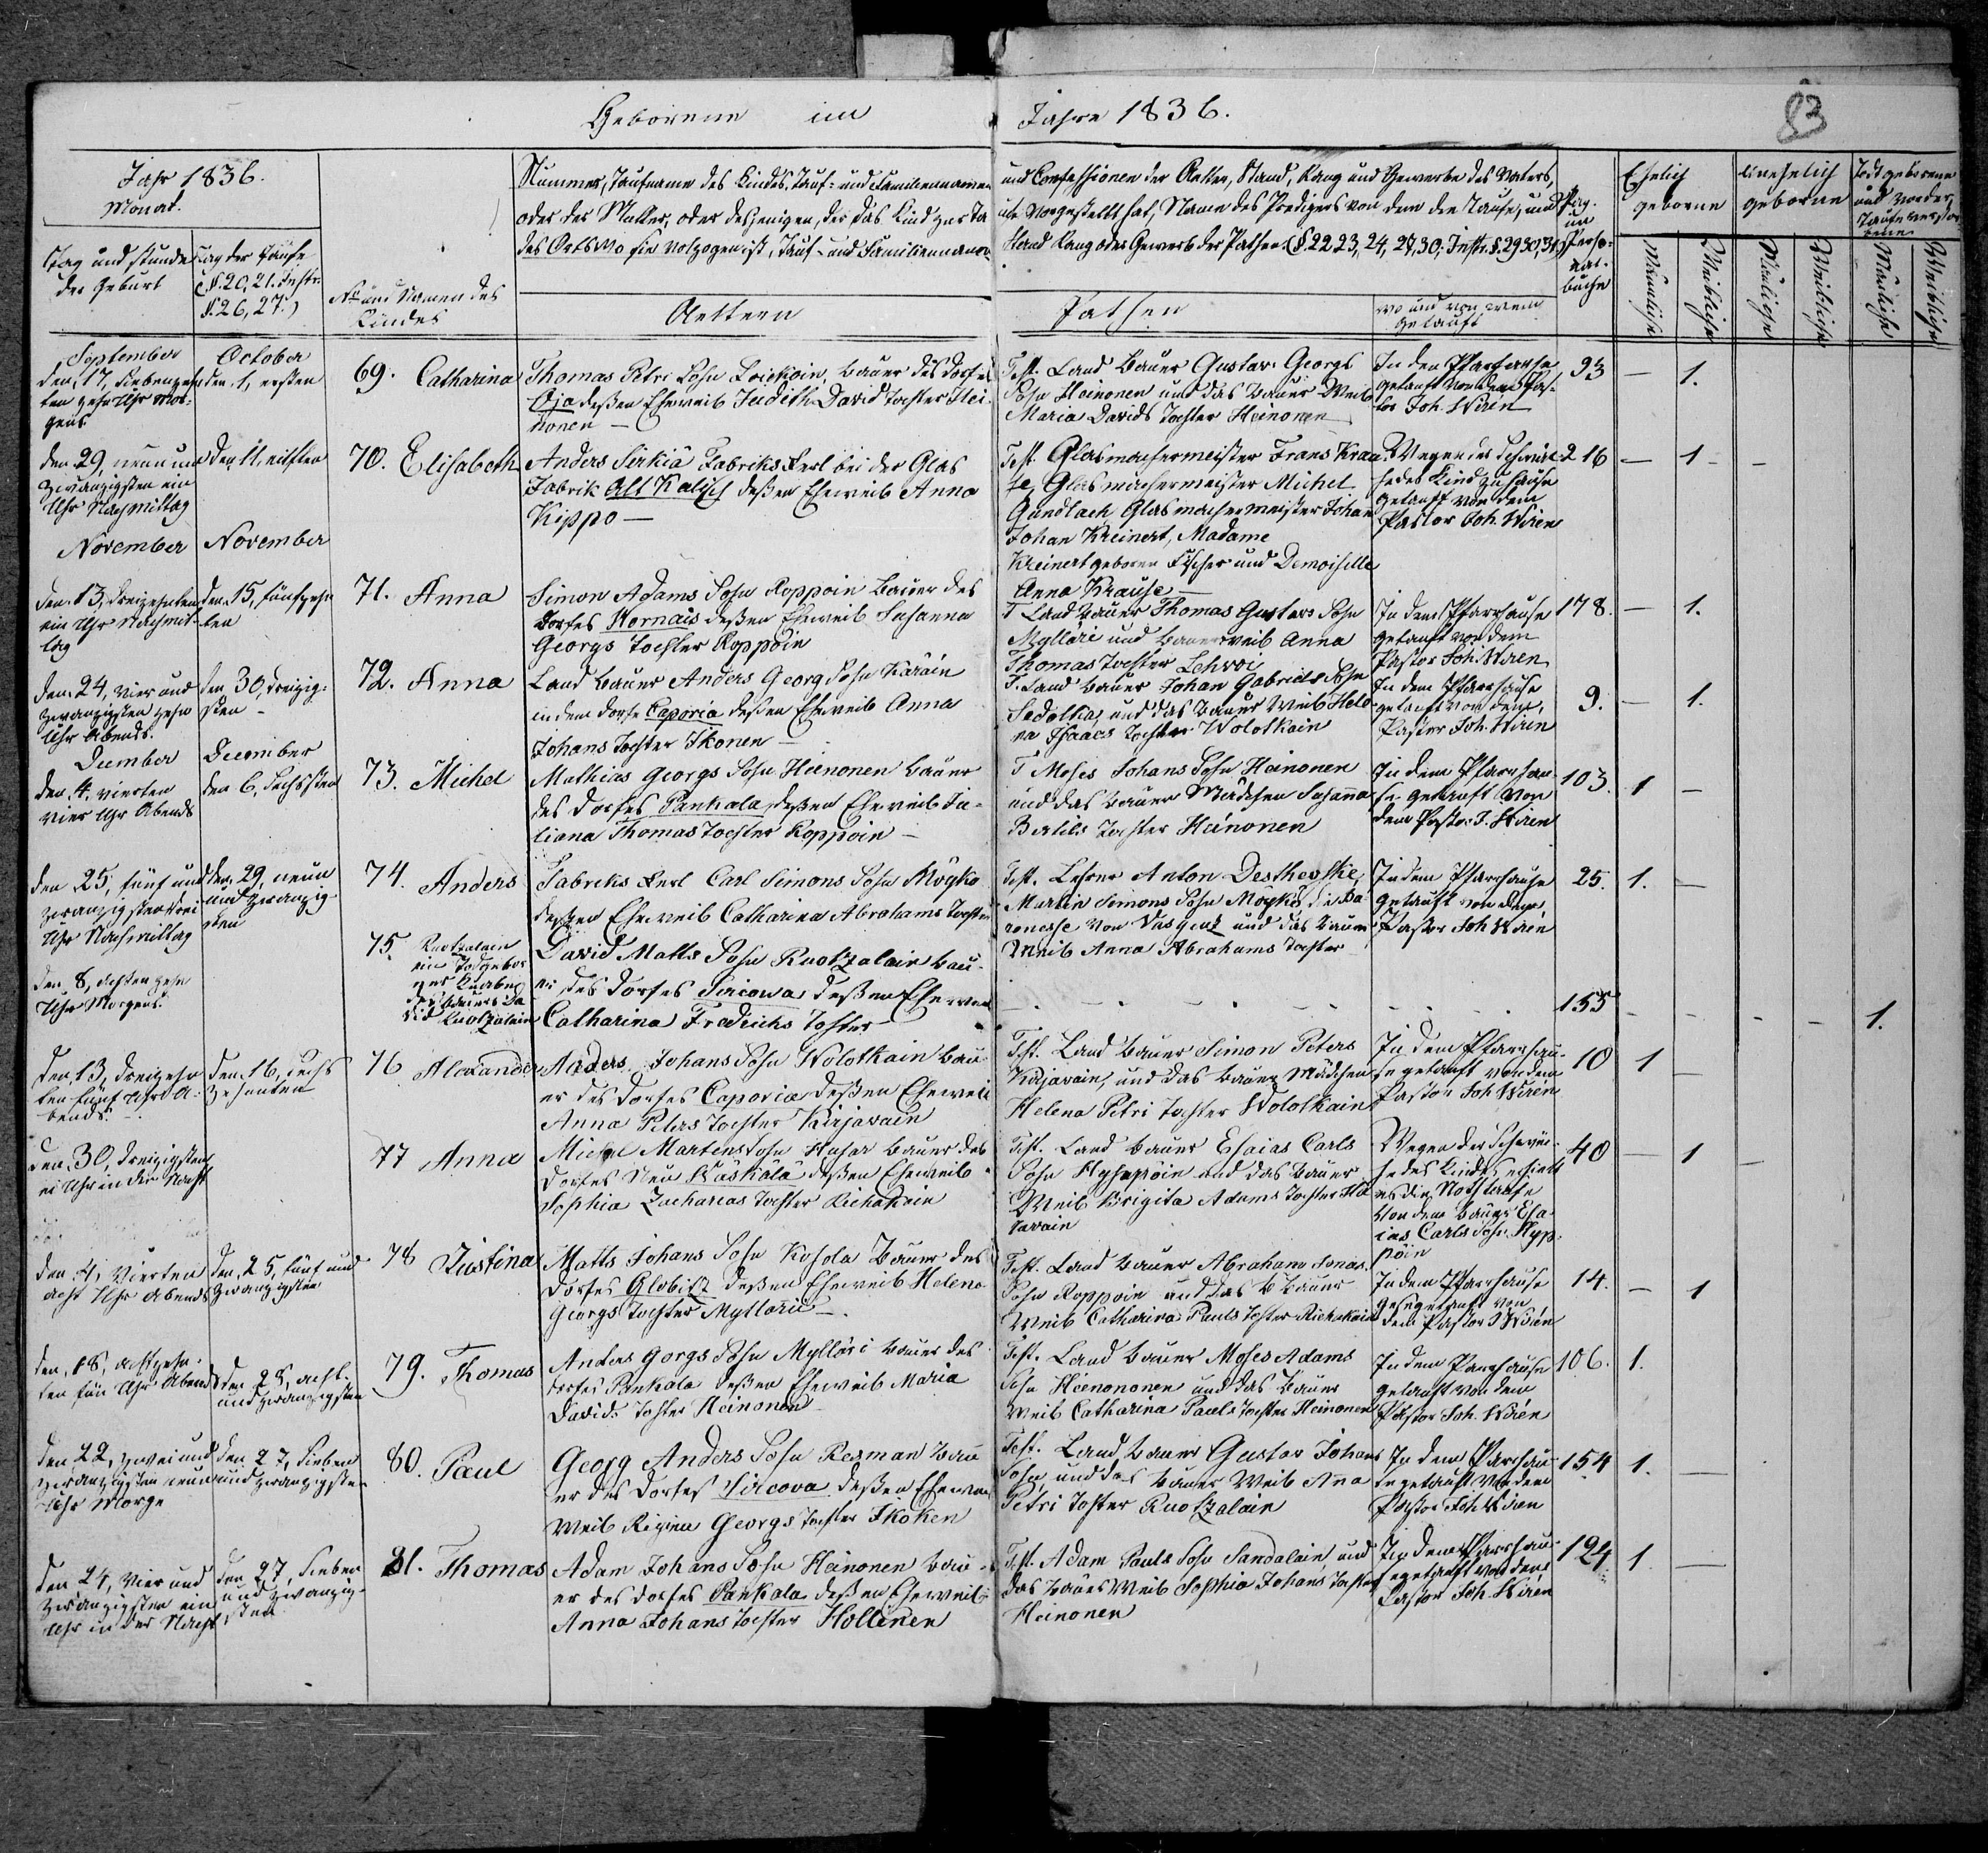 Geborene im Jahre 1836.
83
Jahr 1836.
Monat.
Tag und Stunde
der Geburt
Tag der Taufe
(§. 20, 21. Instr.
§. 26, 27.)
No und Namen des
Kindes
Nummer, Taufname des Kindes, Tauf- und Familiennamen
oder der Mutter, oder desjenigen, der das Kind zur Ta
des Orts wo sie vollzogen ist, Tauf- und Familiennamen
Aeltern
und Confessionen der Aeltern, Stand, Rang und Gewerbe des Vaters,
ufe vorgestellt hat, Name des Predigers von dem die Taufe, und
Stand Rang oder Gewerb der Pathen (§ 22 23, 24, 27, 30, Instr. §. 29 30, 31)
Pathen
wo und von wem
getauft
Pag.
im
Perso-
nal-
buche
Ehelich
geborne
Unehelich
geborne
Todtgeborene
und vor der
Taufe verstor
bene
Männliche
Weibliche
Männliche
Weibliche
Männliche
Weibliche
September
den 17, siebenzehn
ten zehn Uhr Mor-
gens
October
den 1, ersten
69. Catharina
Thomas Petri Sohn Loickoin, Bauer des Dorfes
Oja deßen Eheweib Judith David Tochter Hei-
nonen —
Test. Land Bauer Gustav Georgs
Sohn Heinonen und das Bauer Weib
Maria Davids Tochter Heinonen
In den Pfarhause
getauft von dem Pas-
tor Joh. Wirén
93 — 1.
den 29, neun und
zwanzigsten ein
Uhr Nachmittag
den 11, eilften
70. Elisabeth
Anders Sirkiä Fabriks Kerl bei der Glas
Fabrik Alt Kalisch deßen Eheweib Anna
Kippo —
Test. Glasmachermeister Frans Krau
se, Glasmachermeister Michel
Gundlach Glasmachermeister Johan
Johan Kreinert, Madame
Kreinert geboren Fischer und Demoiselle
Anna Krause —
Wegen der Schwäc
he des Kind zu Hause
getauft von dem
Pastor Joh. Wirén
216 — 1 - -
November
November
den 13, dreizehnten
ein Uhr Nachmit-
tag
den 15, fünfzehn
ten
71. Anna
Simon Adams Sohn Roppoin Bauer des
Dorfes Kornais deßen Eheweib Susanna
Georgs Tochter Roppoin
T Land Bauer Thomas Gustavs Sohn
Mylläri und Bauerweib Anna
Thomas Tochter Lehvoi
In dem Pfarrhause
getauft von dem
Pastor Joh. Wiren
178. — 1.
den 24, vier und
zwanzigsten zehn
Uhr Abends.
den 30, dreizig-
sten -
72. Anna
Land Bauer Anders Georg Sohn Karäin
in dem Dorfe Caporia deßen Eheweib Anna
Johans Tochter Ikonen —
T. Land Bauer Johan Gabriels Sohn
Sadolka, und das Bauer Weib Hele
na Isaacs Tochter Wolotkain
In dem Pfarrhause
getauft von dem,
Pastor Joh. Wiren
9. — 1.
December
December
den 4, vierten
vier Uhr Abends
den 6, sechssten
73. Michel
Mathias Georgs Sohn Heinonen Bauer
des Dorfes Pankala, deßen Eheweib Ju-
liana Thomas Tochter Roppoin —
T Moses Johans Sohn Heinonen
und das Bauer Mädchen Susanna
Bertils Tochter Heinonen
In dem Pfarrhau
se getauft von
dem Pastor J. Wiren
103. 1 —
den 25, fünf und
zwanzigsten drei
Uhr Nachmittag
den 29, neun
und zwanzig
sten
74. Anders
Fabriks Kerl Carl Simons Sohn Möyko
deßen Eheweib Catharina Abrahams Tochter
Test. Lehrer Anton Desthevske
Martin Simons Sohn Möykö, die Ba
ronesse von Vasgent und das Bauer
Weib Anna Abrahams Tochter
In dem Pfarrhause
getauft von dem
Pastor Joh Wirén
25. 1. —
den 8, achten zehn
Uhr Morgens.
75. Ruotzalain
ein Todgebor
ner Knabe
des Bauers Da
vid Ruotzalain
David Matts Sohn Ruotzalain Bau-
er des Dorfes Sircowa, deßen Eheweib
Catharina Fredrichs Tochter
155 - - - - 1.
den 13, dreizehn
ten fünf Uhr A-
bends.
den 16, sechs
zehnten
76 Alexander
Anders Johans Sohn Wolotkain Bau-
er des Dorfes Caporia deßen Eheweib
Anna Peters Tochter Kirjavain
Test. Land Bauer Simon Peters
Kirjavain, und das Bauer Mädchen
Helena Petri Tochter Wolotkain
In dem Pfarrhau-
se getauft von dem
Pastor Joh Wirén
10 1 —
den 30, dreizigsten
Uhr in der Nacht
77 Anna
Michel Martens Sohn Husar Bauer des
Dorfes Neu Wäskälä deßen Eheweib
Sophia Zacharias Tochter Richakain
Test. Land Bauer Esaias Carls
Sohn Hyppöin und das Bauer
Weib Brigita Adams Tochter Ha
vavain
Wegen der Schwäc-
he des Kindes erhielt
es die Nothtaufe
von dem Bauer Esa
ias Carls Sohn Hyp-
pöin
40 — 1 —
den 4, vierten
acht Uhr Abends
den 25, fünf und
zwanzigsten
78 Justina
Matts Johans Sohn Kosola Bauer des
Dorfes Globitz deßen Eheweib Helena
Georgs Tochter Mylläri —.
Test. Land Bauer Abraham Jonas
Sohn Roppoin und das Bauer
Weib Catharina Pauls Tochter Richakain
In dem Pfarrhause
getauft von
dem Pastor J Wirén
14. — 1
den 18, achtzehn-
ten fün Uhr Abends
den 28, acht-
und zwanzigsten
79. Thomas
Anders Gorgs Sohn Mylläri Bauer des
Dorfes Pankala deßen Eheweib Maria
Davids Tochter Heinonen
Test. Land Bauer Moses Adams
Sohn Heinononen und das Bauer
Weib Catharina Pauls Tochter Heinonen
In dem Parrhause
getauft von dem
Pastor Joh. Wirén
106. 1.
den 22, zwei und
zwanzigsten neun
Uhr Morge
den 27, sieben
und zwanzigsten
80. Paul
Georg Anders Sohn Resman Bau
er des Dorfes Sircova deßen Ehe
Weib Regina Georgs Tochter Ikoken
Test. Land Bauer Gustav Johans
Sohn, und das Bauer Weib Anna
Petri Tochter Ruotzalain
In dem Parrhau-
se getauft von dem
Pastor Joh. Wiren
154 1. —
den 24, vier und
zwanzigsten ein
Uhr in der Nacht
den 27, sieben
und zwanzig-
sten
81. Thomas
Adam Johans Sohn Heinonen Bau-
er des Dorfes Pankala deßen Eheweib
Anna Johans Tochter Hollenen
Test. Adam Pauls Sohn Sandalain und
das Bauer Weib Sophia Johans Tochter
Heinonen
In dem Parrhau-
se getauft von dem
Pastor Joh. Wirén
124 1. —